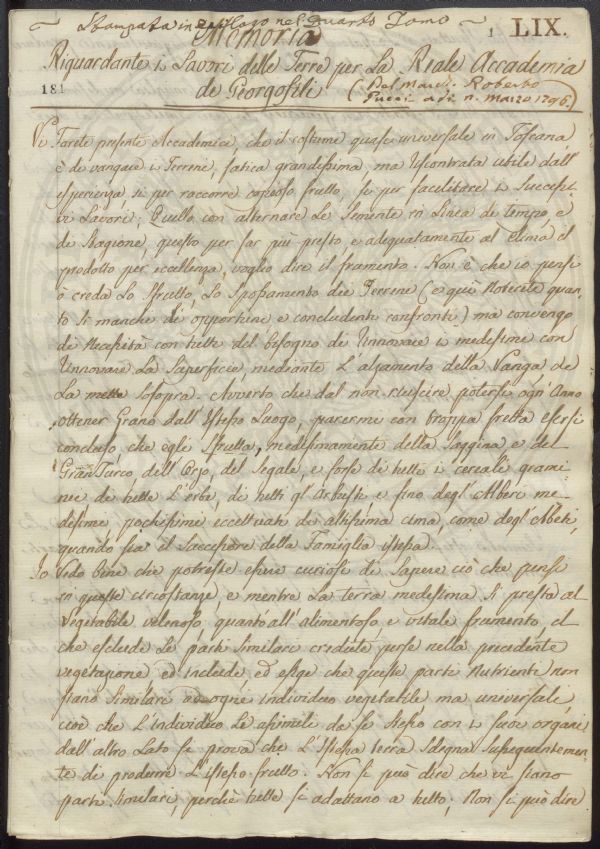 Stampata in nel Quarto Tomo
1 LIX.
Memoria
Riguardante i Lavori delle Terre per La Reale Accademia
181
de Georgofili (Del March. Roberto
Pucci adi Marzo 1796)
Vi Farete presente Accademici, che il costume quasi universale in Toscana
è di vangare i Terreni, fatica grandissima, ma riscontrata utile dall'
esperienza, sì per raccorre copioso frutto, sì per facilitare i Successi-
vi Lavori; Quello con alternare Le Semente in Linea di tempo, e
di Stagione, questo per far più presto, e adeguatamente al clima il
prodotto per eccellenza, voglio dire il frumento. Non è che io pensi
ò creda Lo sfrutto, Lo Spossamento dei Terreni (e qui Noterete quan-
to si manchi di opportuni e concludenti confronti) ma convengo
di Necessità con tutti del bisogno di rinnovare i medesimi con
rinnovare La Superficie, mediante L'alzamento della Vanga che
La mette Sosopra. Avverto che dal non riuscire potersi ogni Anno
ottener Grano dall'istesso Luogo, parermi con troppa fretta essersi
concluso, che egli sfrutta, medesimamente della Saggina e del
Gran Turco, dell'Orzo, del Segale, e forse di tutti i cereali, grami-
nie di tutte L'erbe, di tutti gl'Arbusti, e fino degl'Alberi me-
desimi pochissimi eccettuati di altissima cima, come degl'Abeti,
quando sia il Successore della Famiglia istessa.
Io Vedo bene che potreste essere curiosi di Sapere ciò che pensi
in queste circostanze, e mentre La terra medesima Si presta al
Vegetabile velenoso, quanto all'alimentoso e vitale frumento, il
che esclude Le parti similari credute perse nella precedente
vegetazione ed include ed esige che queste parti Nutrienti non
siano Similari ad ogni individuo vegetabile ma universali,
cioè che L'individuo Le assimili da se stesso con i suoi organi
dall'altro Lato si prova che L'istessa terra Sdegna Susseguentemen-
te di produrre L'istesso frutto. Non si può dire che vi siano
parti Similari, perchè tutte si adattano a tutto, Non si può dire